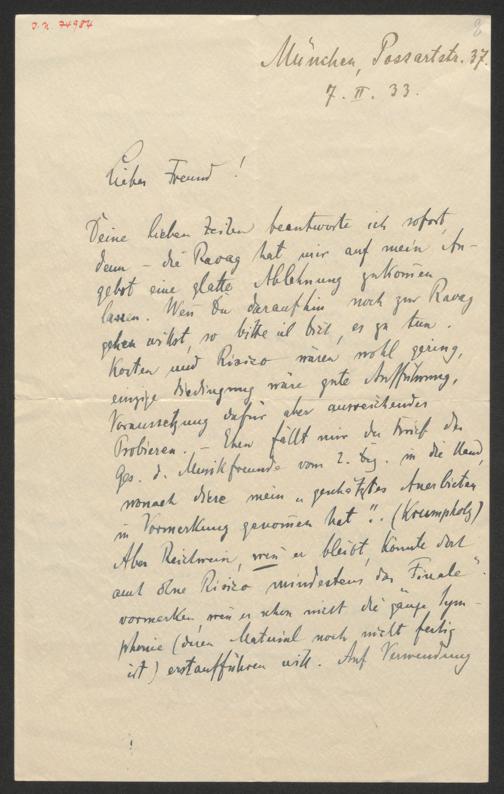 J.N. 74984
8
München, Possartstr. 37.
7. II. 33.
Lieber Freund!
Deine lieben Zeilen beantworte ich sofort,
denn – die Ravag hat mir auf mein An-
gebot eine glatte Ablehnung zukom̄en
lassen. Wen̄ Du daraufhin noch zur Ravag
gehen willst, so bitte ich Dich, es zu tun.
Kosten und Risico wären wohl gering,
einzige Bedingung wäre gute Aufführung,
Voraussetzung dafür aber ausreichendes
Probieren. – Eben fällt mir der Brief der
Ges. d. Musikfreunde vom 2. Dez. in die Hand,
wonach diese mein „geschätztes Anerbieten
in Vormerkung genom̄en hat“. (Krumpholz)
Aber Reichwein, wen̄ er bleibt, könnte dort
ohne Risico mindestens das „Finale“
vormerken, wen̄ er schon nicht die ganze Sym-
phonie (deren Material noch nicht fertig
ist) erstaufführen will. Auf Verwendung